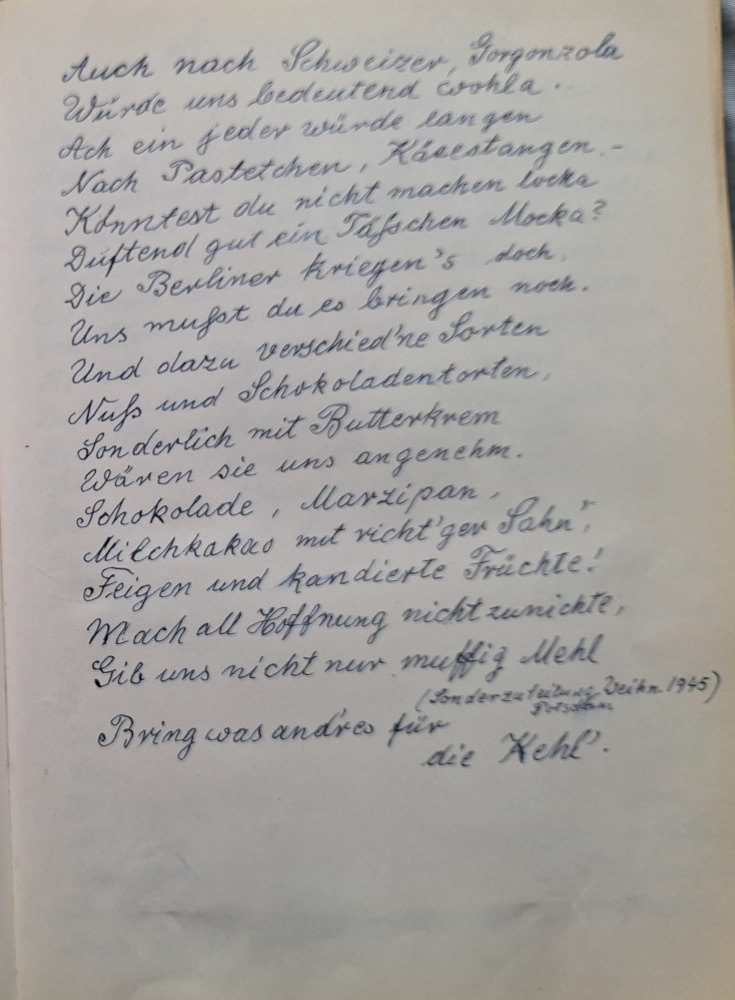 Auch nach Schweizer, Gorgonzola
Würde uns bedeutend wohla.
Ach ein jeder würde langen
Nach Pastetchen, Käsestangen.–
Könntest du nicht machen locka
Duftend gut ein Täßchen Mocka?
Die Berliner kriegen's doch.
Uns mußt du es bringen noch.
Und dazu verschied'ne Sorten
Nuß und Schokoladentorten,
Sonderlich mit Butterkrem
Wären sie uns angenehm.
Schokolade, Marzipan,
Milchkakao mit richt'ger Sahn',
Feigen und kandierte Früchte!
Mach all Hoffnung nicht zunichte,
Gib uns nicht nur muffig Mehl
(Sonderzuteilung Weihn. 1945)
Potsdam
Bring was andres für
die Kehl'.